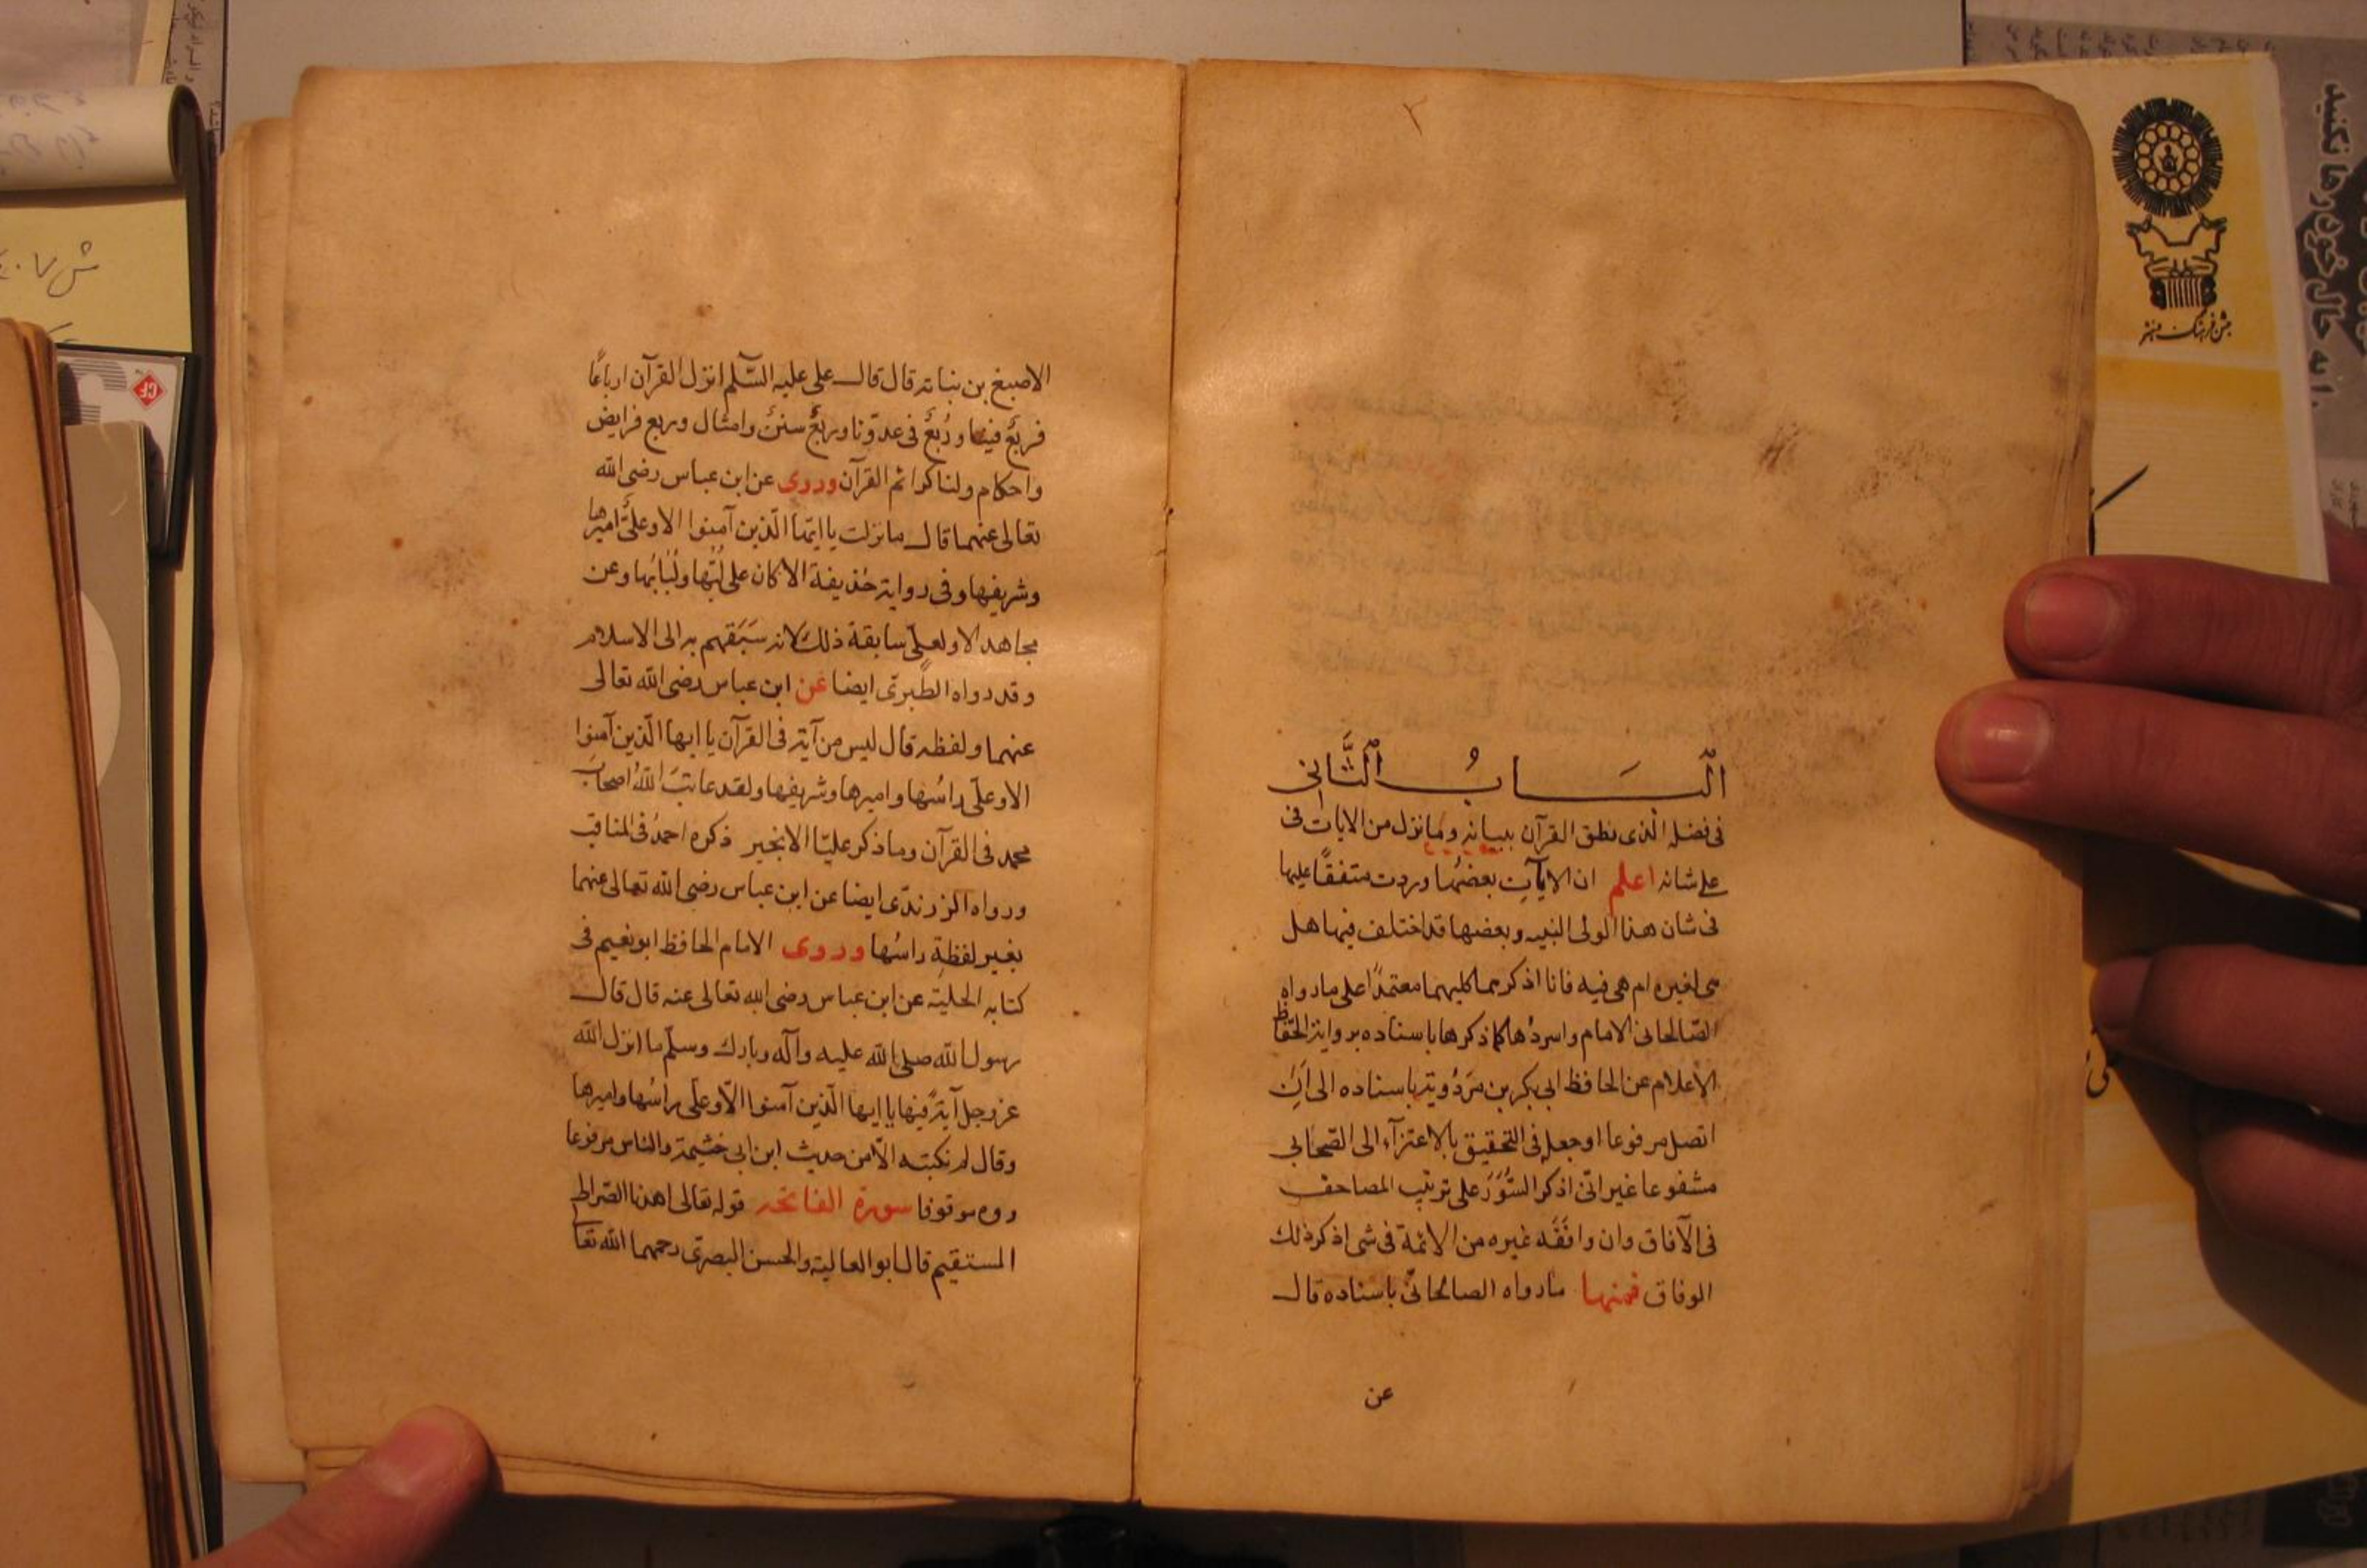 ٢
الْبَابُ الثَّانِي
فى فضله الذى نطق القرآن ببيانه وما نزل من الايات فى
على شانه اعلم ان الايات بعضها وردت متفقًا عليها
فى شان هذا الولى النبيه وبعضها قد اختلف فيها هل
هى لغيره ام هى فيه فانا اذكرهما كليهما معتمدًا على ما رواه
الصّالحانى الامام واسردها كما ذكرها باسناده برواية الحفّاظ
الأعلام عن الحافظ ابى بكر بن مَرْدُويَه باسناده الى ان
اتصل مرفوعا او جعله فى التحقيق بالاعتزآء الى الصّحابى
مشفوعا غير انّى اذكر السُّوَر على ترتيب المصاحف
فى الآفاق وان وافَقَه غيره من الائمة فى شى اذكر ذلك
الوفاق فمنها ما رواه الصالحانىّ باسناده قال
عن
الاصبغ بن نباته قال قال على عليه السّلم انزل القرآن ارباعًا
فربعٌ فينا ورُبعٌ فى عدوّنا وربعٌ سننٌ وامثال وربع فرايض
واحكام ولنا كرائم القرآن وروى عن ابن عباس رضى الله
تعالى عنهما قال ما نزلت يا ايها الّذين آمنوا الا وعلىٌّ اميرها
وشريفها وفى رواية حذيفة الا كان على لُبّها ولُبَابُها وعن
مجاهد الا ولعلىّ سابقة ذلك لانه سَبَقهم به الى الاسلام
وقد رواه الطبرىّ ايضا عن ابن عباس رضى الله تعالى
عنهما ولفظه قال ليس من آية فى القرآن يا ايها الّذين آمنوا
الا وعلىّ راسُها واميرها وشريفها ولقد عاتبَ اللهُ اصحابَ
محمد فى القرآن وما ذكر عليّا الا بخير ذكره احمدُ فى المناقب
ورواه الزرندىّ ايضا عن ابن عباس رضى الله تعالى عنهما
بغير لفظةِ راسُها وروى الامام الحافظ ابو نعيم فى
كتابه الحلية عن ابن عباس رضى الله تعالى عنه قال قال
رسول الله صلى الله عليه وآله وبارك وسلّم ما انزل الله
عز وجل آيةً فيها يا ايها الّذين آمنوا الّا وعلى راسُها واميرها
وقال لم نكتبه الّا من حديث ابن ابى خثيمة والناس مرفوعا
روه موقوفا سورة الفاتحه قوله تعالى اهدنا الصّراط
المستقيم قال ابو العالية والحسن البصرىّ رحمهما الله تعا
جشن فرهنگ و هنر
را به حال خود رها نکنید